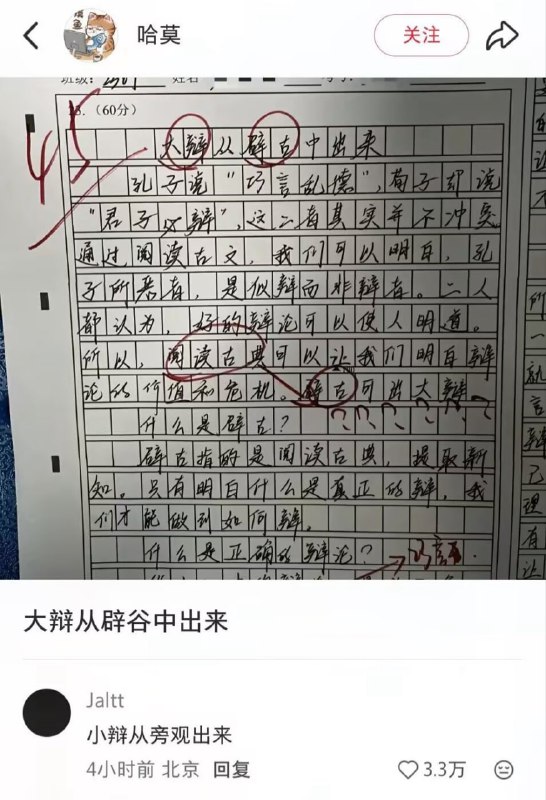 哈莫
关注
45
23.（60分）
大辩从辟古中出来
孔子说“巧言乱德”，荀子却说
“君子必辩”，这二者其实并不冲突
通过阅读古文，我们可以明白，孔
子所恶者，是似辩而非辩者。二人
都认为，好的辩论可以使人明道。
所以，阅读古典可以让我们明白辩
论的价值和危机。辟古可出大辩
？？？？？？
什么是辟古？
辟古指的是阅读古典，提取新
知。只有明白什么是真正的辩，我
们才能做到如何辩。
什么是正确的辩论？
巧言
大辩从辟谷中出来
Jaltt
小辩从旁观出来
4小时前 北京 回复
3.3万